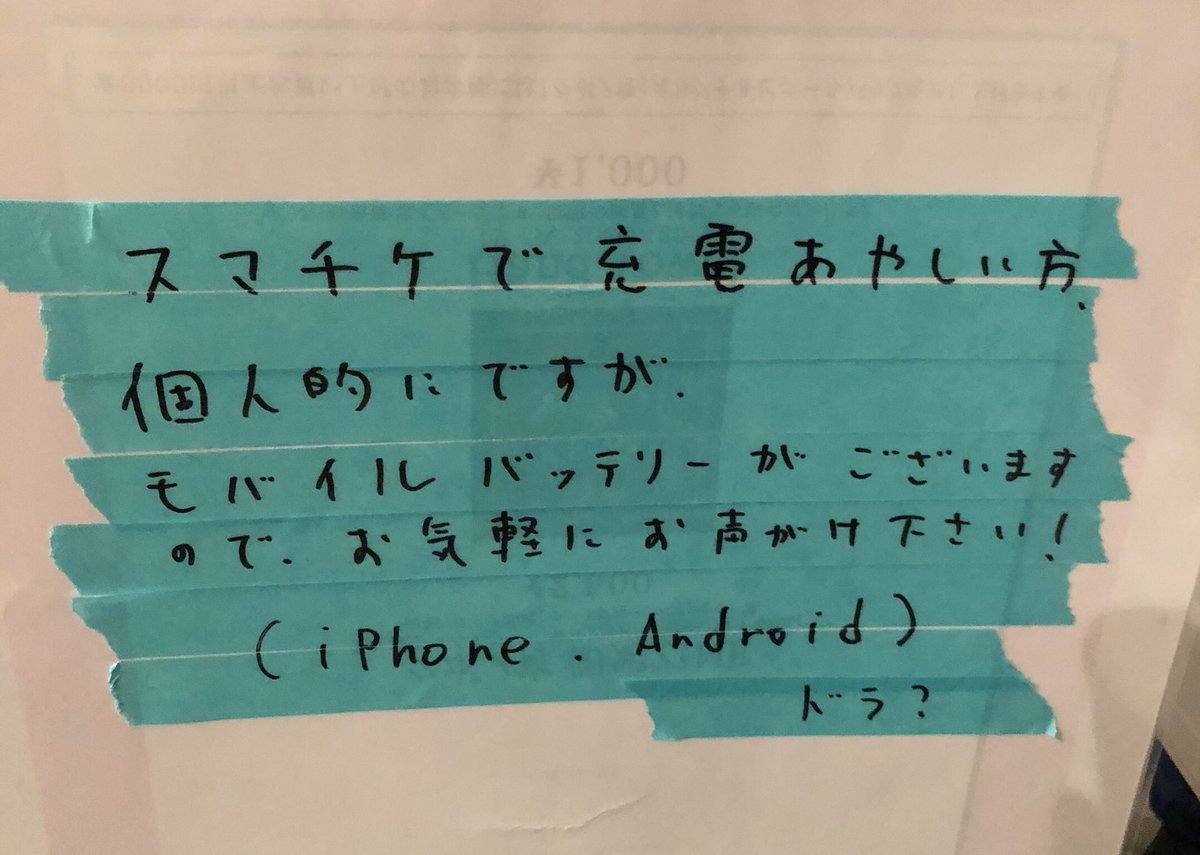 スマチケで充電あやしい方、
個人的にですが、
モバイルバッテリーがございます
ので、お気軽にお声がけ下さい!
(iPhone. Android)
ドラ?
000,1★